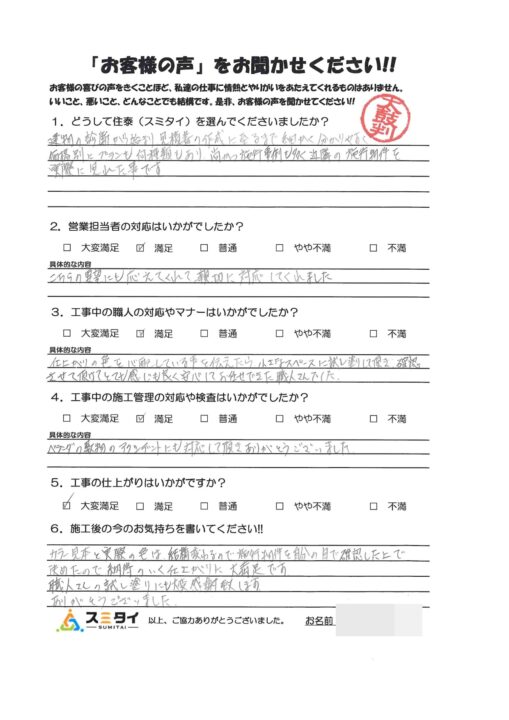 「お客様の声」をお聞かせください!!
お客様の喜びの声をきくことほど、私達の仕事に情熱とやりがいをあたえてくれるものはありません。
いいこと、悪いこと、どんなことでも結構です。是非、お客様の声を聞かせてください!!
太鼓判
1．どうして住泰（スミタイ）を選んでくださいましたか?
建物の診断から施工見積書の作成に至るまで細かく分かりやすく
価格別にプランも何種類もあり 尚かつ施行事例も多く近隣の施行物件を
実際に見れた事です
2．営業担当者の対応はいかがでしたか?
□ 大変満足 ☑ 満足 □ 普通 □ やや不満 □ 不満
具体的な内容
こちらの要望にも応えてくれて親切に対応してくれました
3．工事中の職人の対応やマナーはいかがでしたか?
□ 大変満足 ☑ 満足 □ 普通 □ やや不満 □ 不満
具体的な内容
仕上がりの色を心配している事を伝えたら 小さなスペースに試し塗りして頂き 確認
させて頂けてとても感じも良く安心してお任せできた職人さんでした
4．工事中の施工管理の対応や検査はいかがでしたか?
□ 大変満足 ☑ 満足 □ 普通 □ やや不満 □ 不満
具体的な内容
ベランダの敷物のアクシデントにも対応して頂きありがとうございました
5．工事の仕上がりはいかがですか?
☑ 大変満足 □ 満足 □ 普通 □ やや不満 □ 不満
6．施工後の今のお気持ちを書いてください!!
カラー見本と実際の色は、結構変わるので施行物件を自分の目で確認した上で
決めたので納得のいく仕上がりに大満足です
職人さんの試し塗りにも大変感謝致します
ありがとうございました
スミタイ
SUMITAI
以上、ご協力ありがとうございました。 お名前